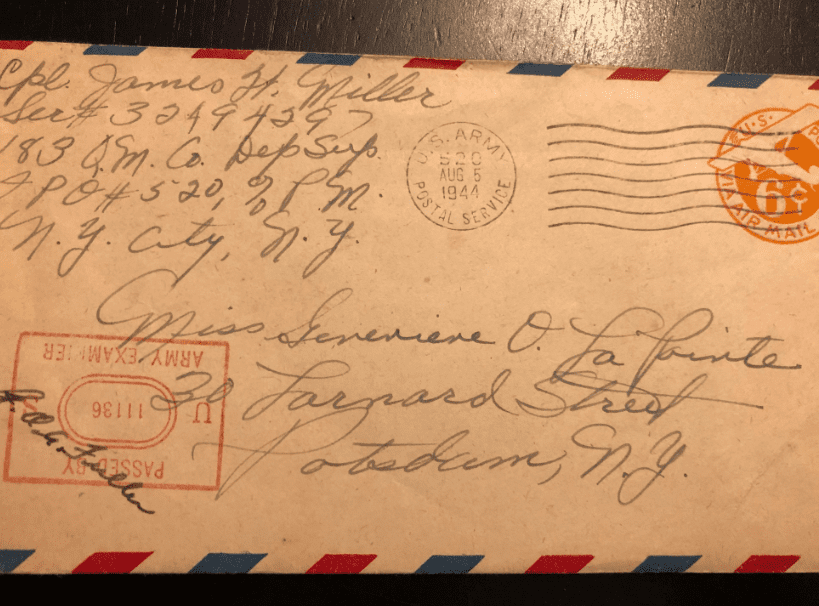 Cpl. James H. Miller
Ser# 32494297
183 Q.M. Co. Dep Sup.
APO # 520, % P.M.
N.Y. City, N.Y.
U.S. ARMY
520
AUG 5
1944
POSTAL SERVICE
U.S.
6¢
VIA AIR MAIL
Miss Genevieve O. La Pointe
30 Larnard Street
Potsdam, N.Y.
PASSED BY
U 11136
ARMY EXAMINER